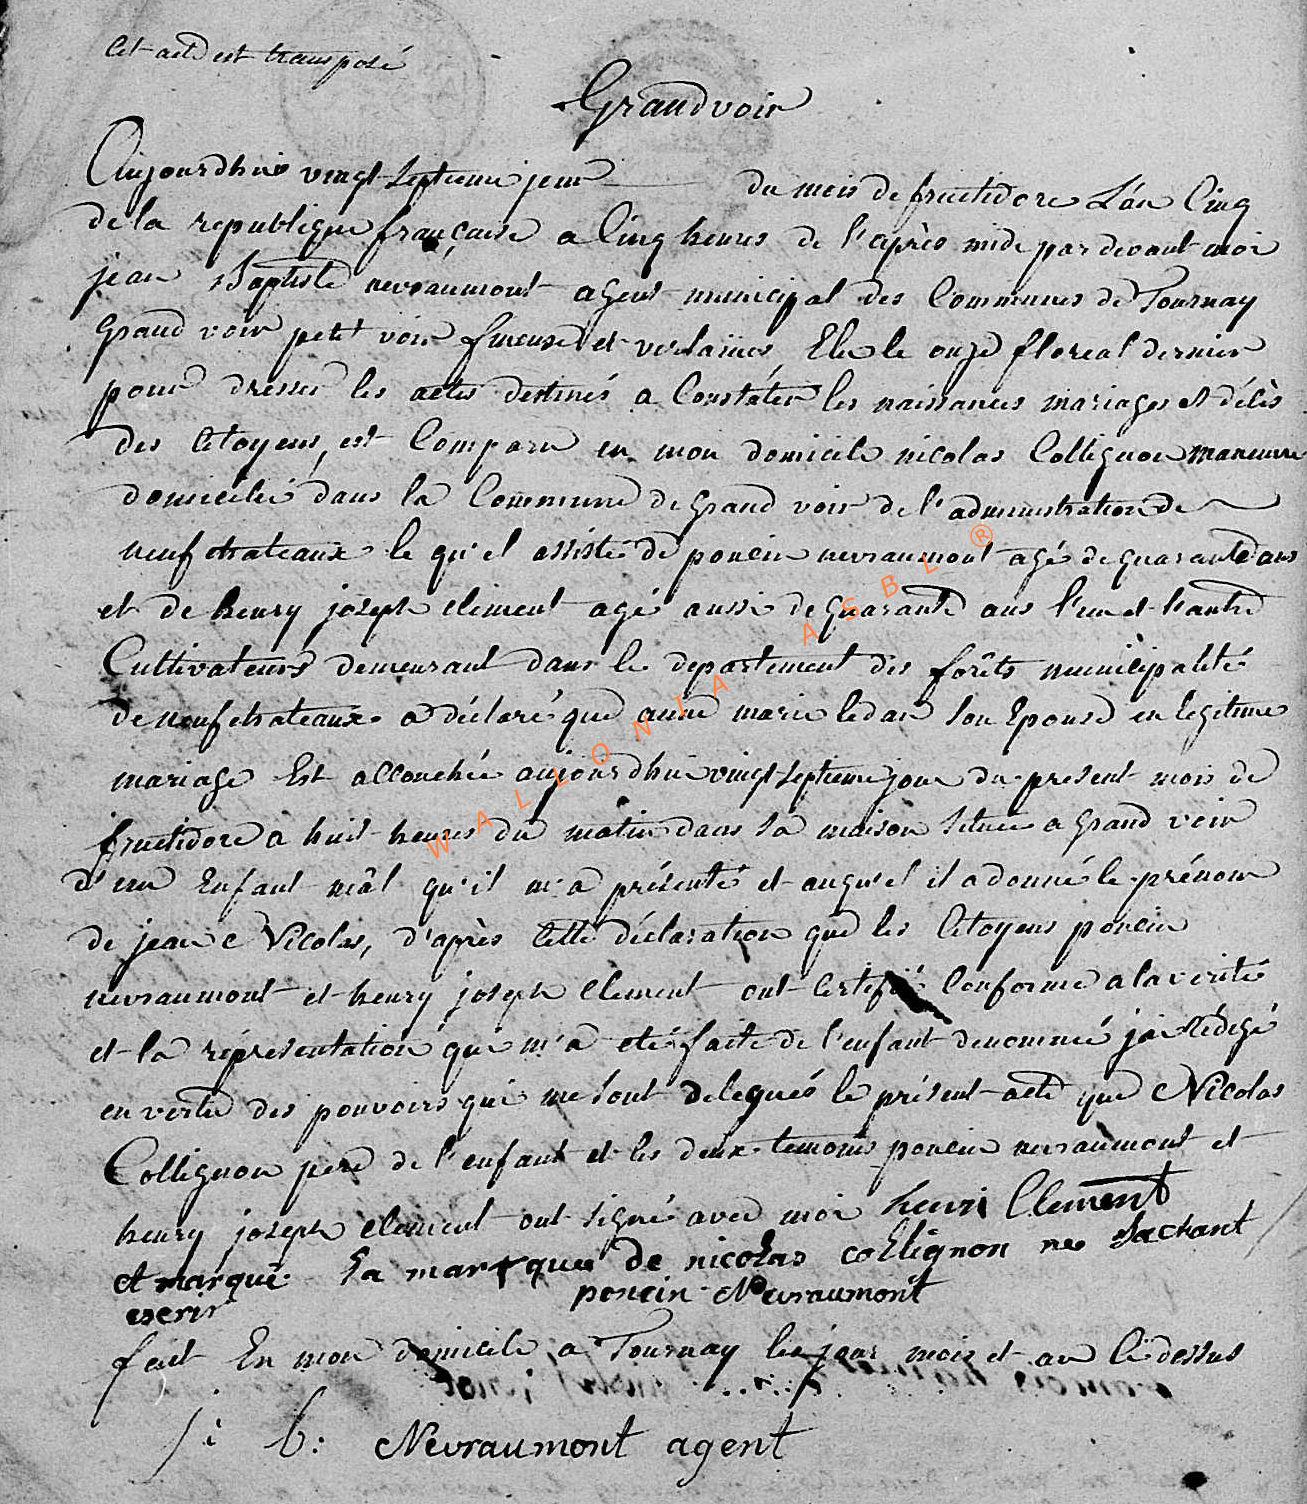 Cet acte est transposé
Grandvoir
Aujourdhui vingt septieme jour du mois de fructidore L'an Cinq
de la republique française a Cinq heures de l'après midi par devant moi
jean Baptiste nevraumont agent municipal des Communes de Tournay
Grand voir petit voir fineuse et verlaines Elu le onze floreal dernier
pour dresser les actes destinés a Constater les naissances mariages et décès
des Citoyens, est Comparu en mon domicile nicolas Collignon maneuvre
domicilié dans la Commune de grand voir de l'administration de
neufchateaux le qu'el assisté de poncin nevraumont agé de quarante ans
et de henry joseph clement agé aussi de quarante ans l'un et l'autre
Cultivateurs demeurant dans le departement des forêts municipalité
de neufchateaux a déclaré que anne marie ledan son Epouse en legitime
mariage Est accouchée aujourdhui vingt septieme jour du present mois de
fructidore a huit heures du matin dans sa maison située a grand voir
d'un Enfant mâl qu'il m'a présenté et auqu'el il a donné le prénom
de jean Nicolas, d'après Cette déclaration que les Citoyens poncin
nevraumont et henry joseph Clement ont Certifié Conforme a la verité
et la représentation qui m'a eté faite de l'enfant denommé jai Rédegé
en vertu des pouvoirs qui me sont delegués le présent acte que Nicolas
Collignon pere de l'enfant et les deux temoins poncin nevraumont et
henry joseph clement ont signé avec moi henri Clement
et marqué. la marque de nicolas collignon ne sachant
escrir poncin Nevraumont
fait En mon domicile a Tournay les jour mois et an Cidessus
j: b: Nevraumont agent
WALLONIA ASBL ®